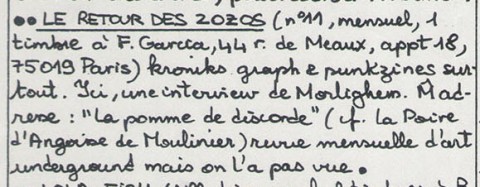 ●● LE RETOUR DES ZOZOS (n°11, mensuel, 1
timbre à F. Garcia, 44 r. de Meaux, appt 18,
75019 Paris) kroniks graph & punkzines sur-
tout. Ici, une interview de Morlighem. Mad-
rese : "La pomme de discorde" (cf. la Poire
d'Angoise de Moulinier) revue mensuelle d'art
underground mais on l'a pas vue ●